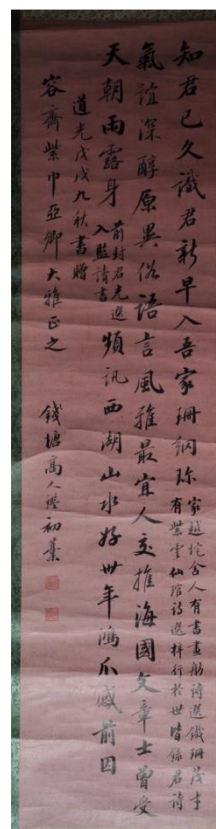 知君已久識君新早入吾家珊網珍
家越垞舍人有書畫舫詩選鐵珊茂才
有紫雲仙館詩選梓行於世皆錄君詩
氣誼深醇原異俗語言風雅最宜人交推海國文章士曾受
天朝雨露身
前封君充選
入監讀書
頻訊西湖山水好卅年鴻爪感前因
道光戊戌九秋書贈
容齋紫巾亞卿大雅正之
錢塘高人鑒初藁